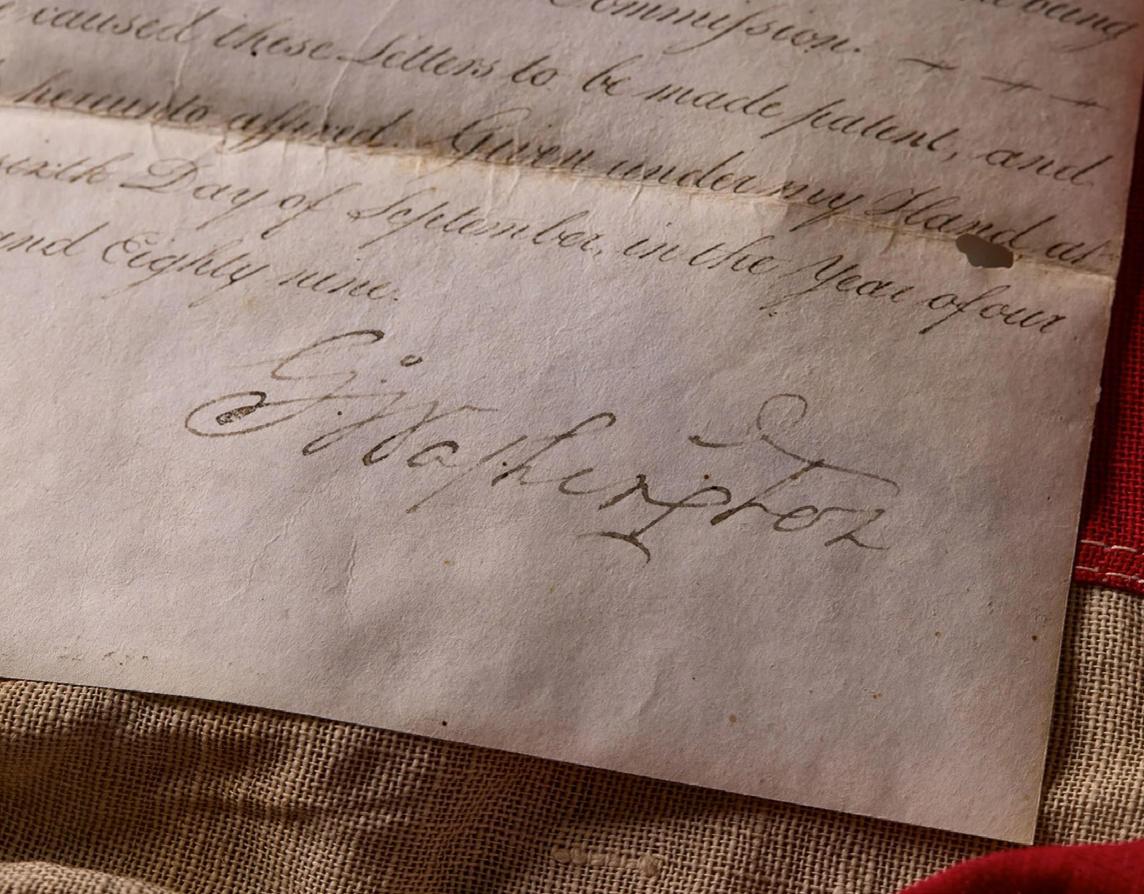 being
Commission. — — —
caused these Letters to be made patent, and
hereunto affixed. Given under my Hand at
sixth Day of September, in the Year of our
and Eighty nine.
G:Washington